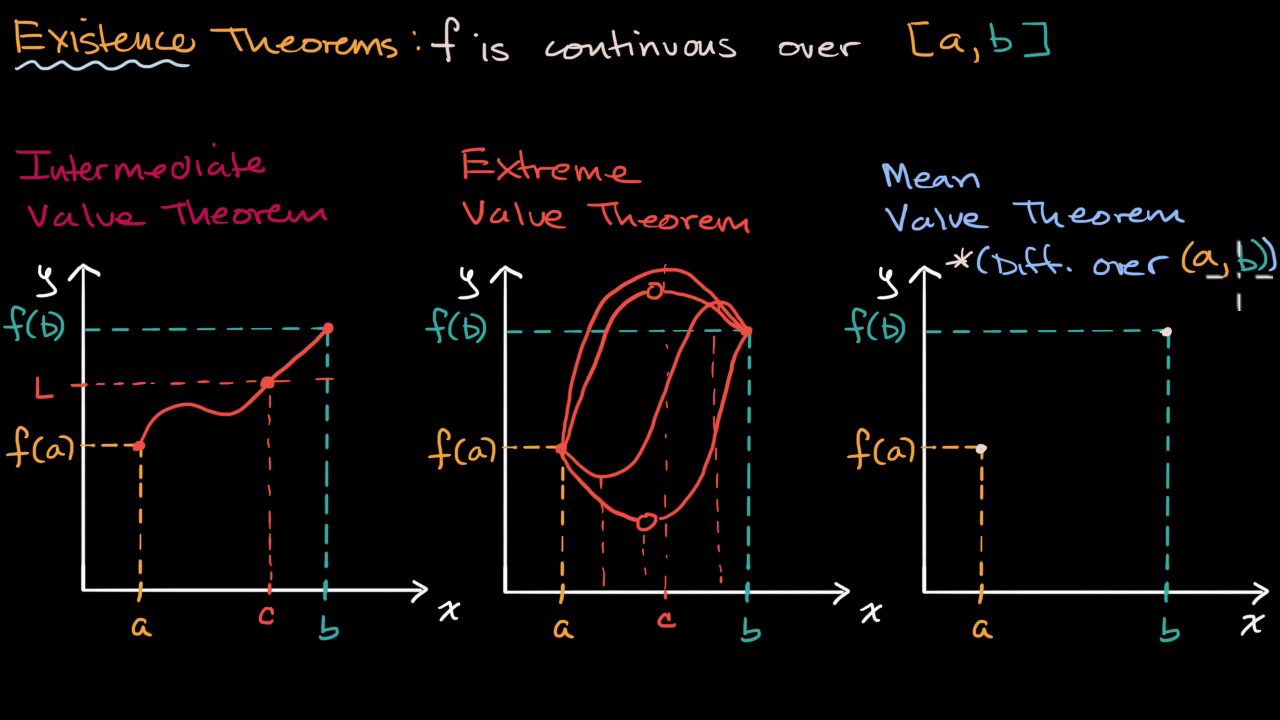 Existence Theorems: f is continuous over [a, b]
Intermediate
Value Theorem
Extreme
Value Theorem
Mean
Value Theorem
*(Diff. over (a, b))
y
f(b)
L
f(a)
a
c
b
x
y
f(b)
f(a)
a
c
b
x
y
f(b)
f(a)
a
b
x